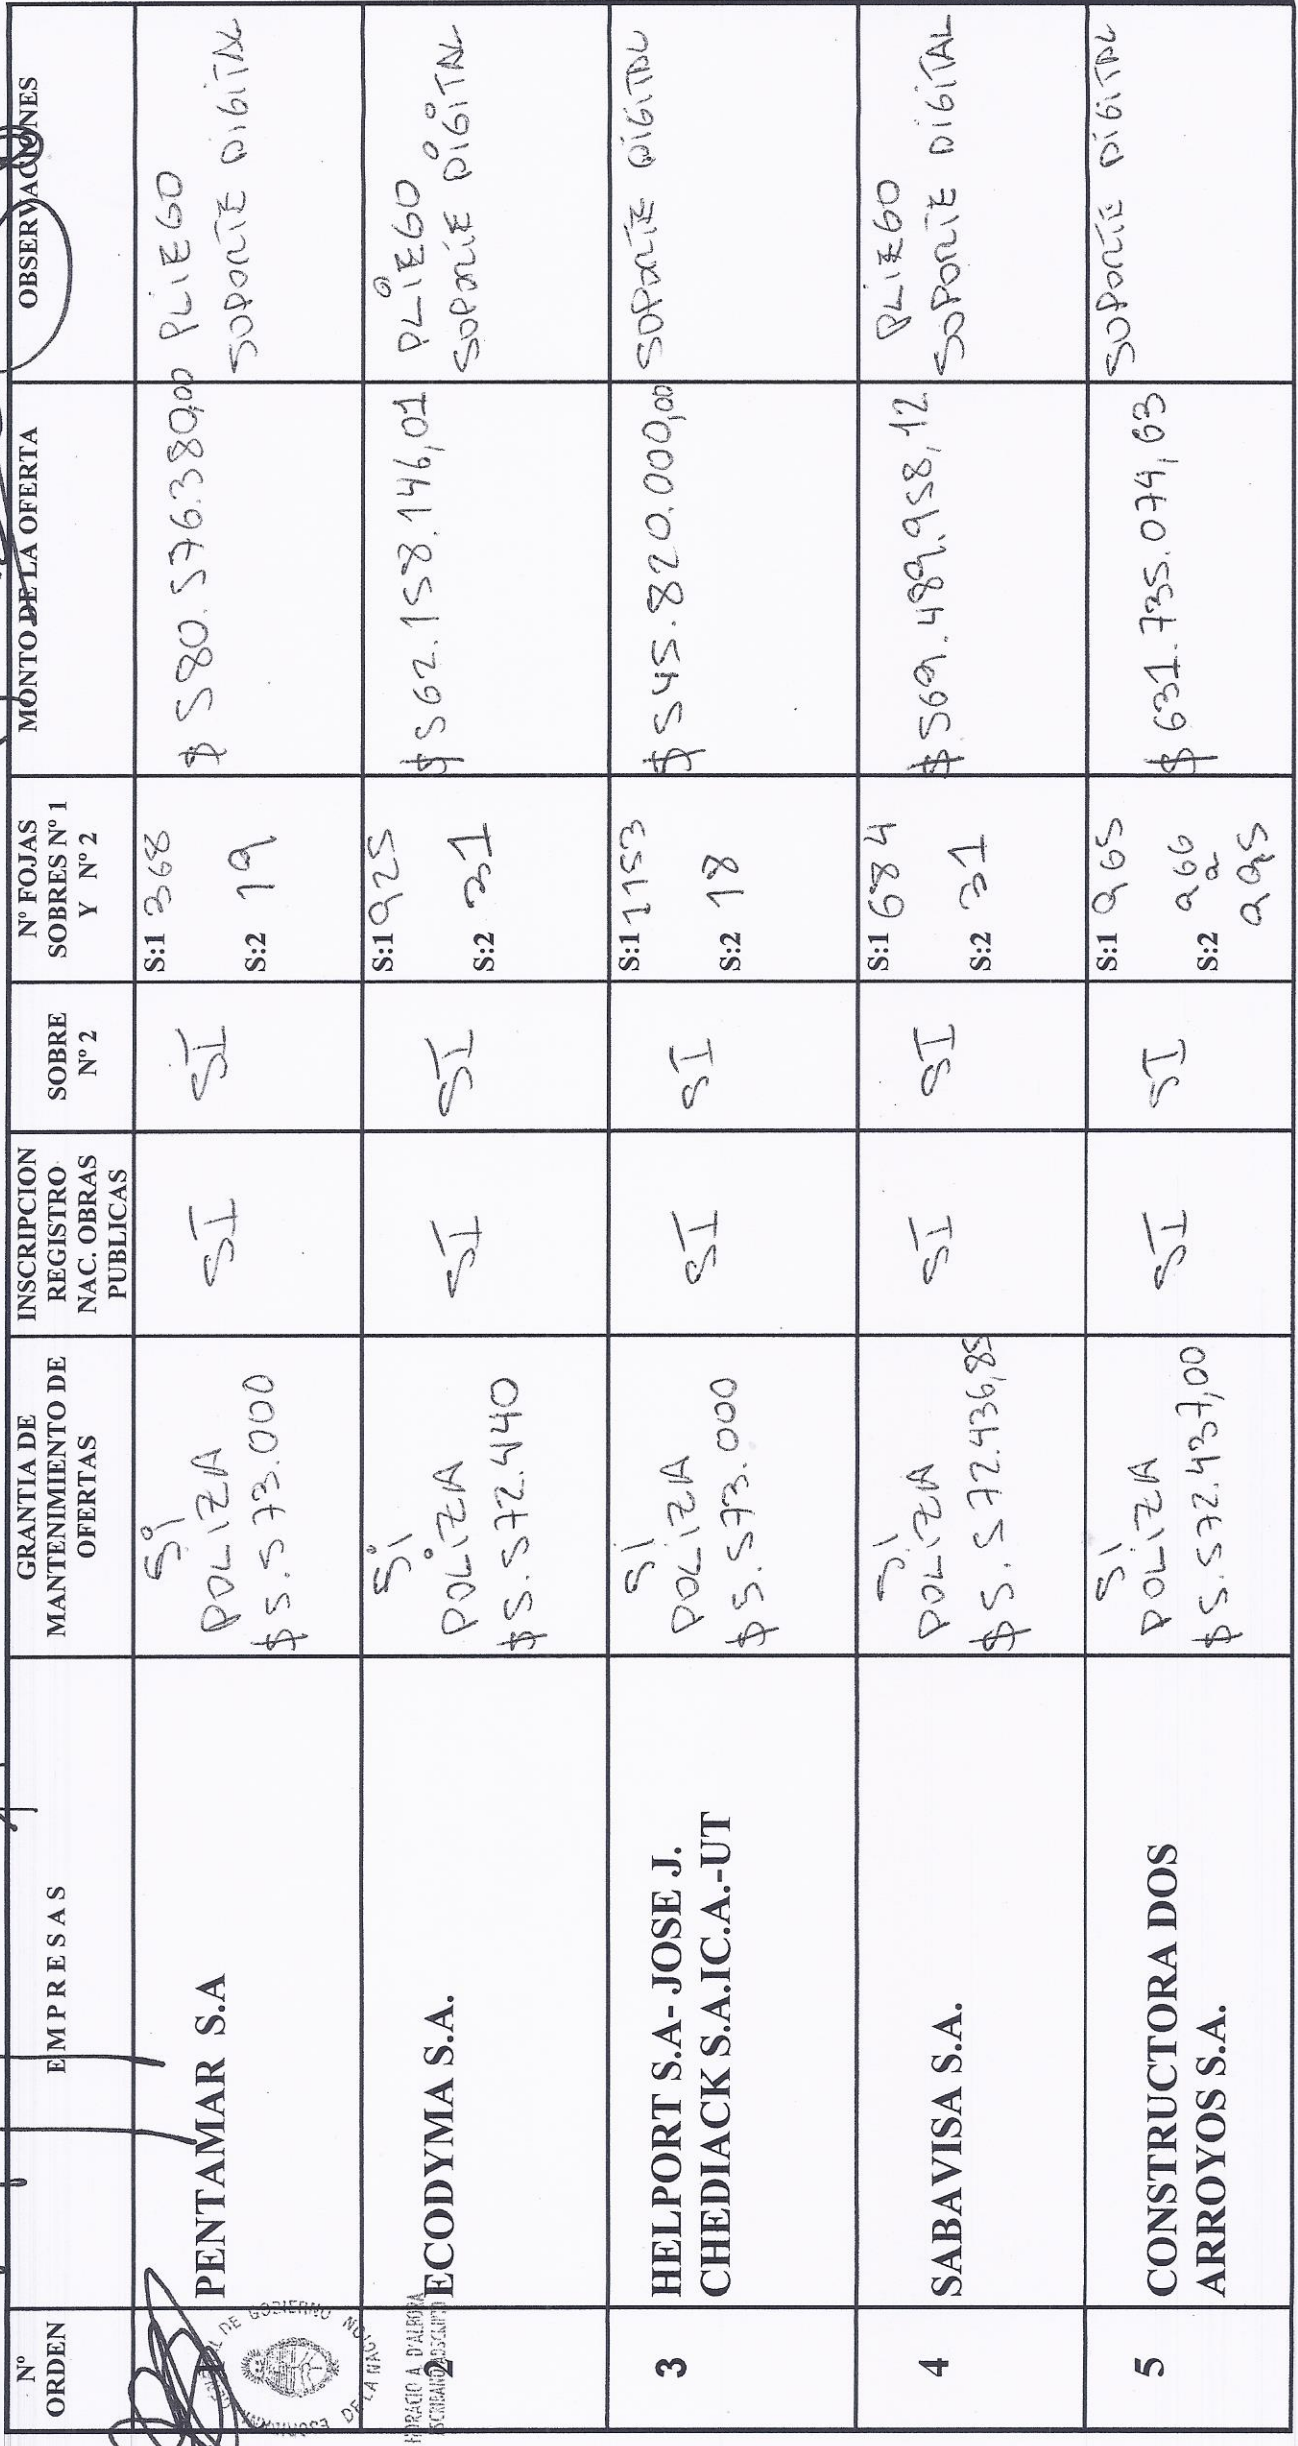 Nº ORDEN
EMPRESAS
GRANTIA DE MANTENIMIENTO DE OFERTAS
INSCRIPCION REGISTRO NAC. OBRAS PUBLICAS
SOBRE Nº 2
Nº FOJAS SOBRES Nº 1 Y Nº 2
MONTO DE LA OFERTA
OBSERVACIONES
PENTAMAR S.A
Si
POLIZA
$5.573.000
SI
SI
S:1 368
S:2 19
$ 580.576.380,00
PLIEGO
SOPORTE DIGITAL
2
ECODYMA S.A.
Si
POLIZA
$5.572.440
SI
SI
S:1 925
S:2 31
$562.158.146,01
PLIEGO
SOPORTE DIGITAL
3
HELPORT S.A- JOSE J.
CHEDIACK S.A.IC.A.-UT
Si
POLIZA
$5.573.000
SI
SI
S:1 1153
S:2 18
$545.820.000,00
SOPORTE DIGITAL
4
SABAVISA S.A.
Si
POLIZA
$5.572.436,85
SI
SI
S:1 684
S:2 31
$569.489.958,12
PLIEGO
SOPORTE DIGITAL
5
CONSTRUCTORA DOS
ARROYOS S.A.
Si
POLIZA
$5.572.437,00
SI
SI
S:1 965
S:2 966
a
995
$ 631.735.074,63
SOPORTE DIGITAL
DE GOBIERNO
DE LA NACI
HORACIO A. D'ALBORA
ESCRIBANO ADSCRIPTO